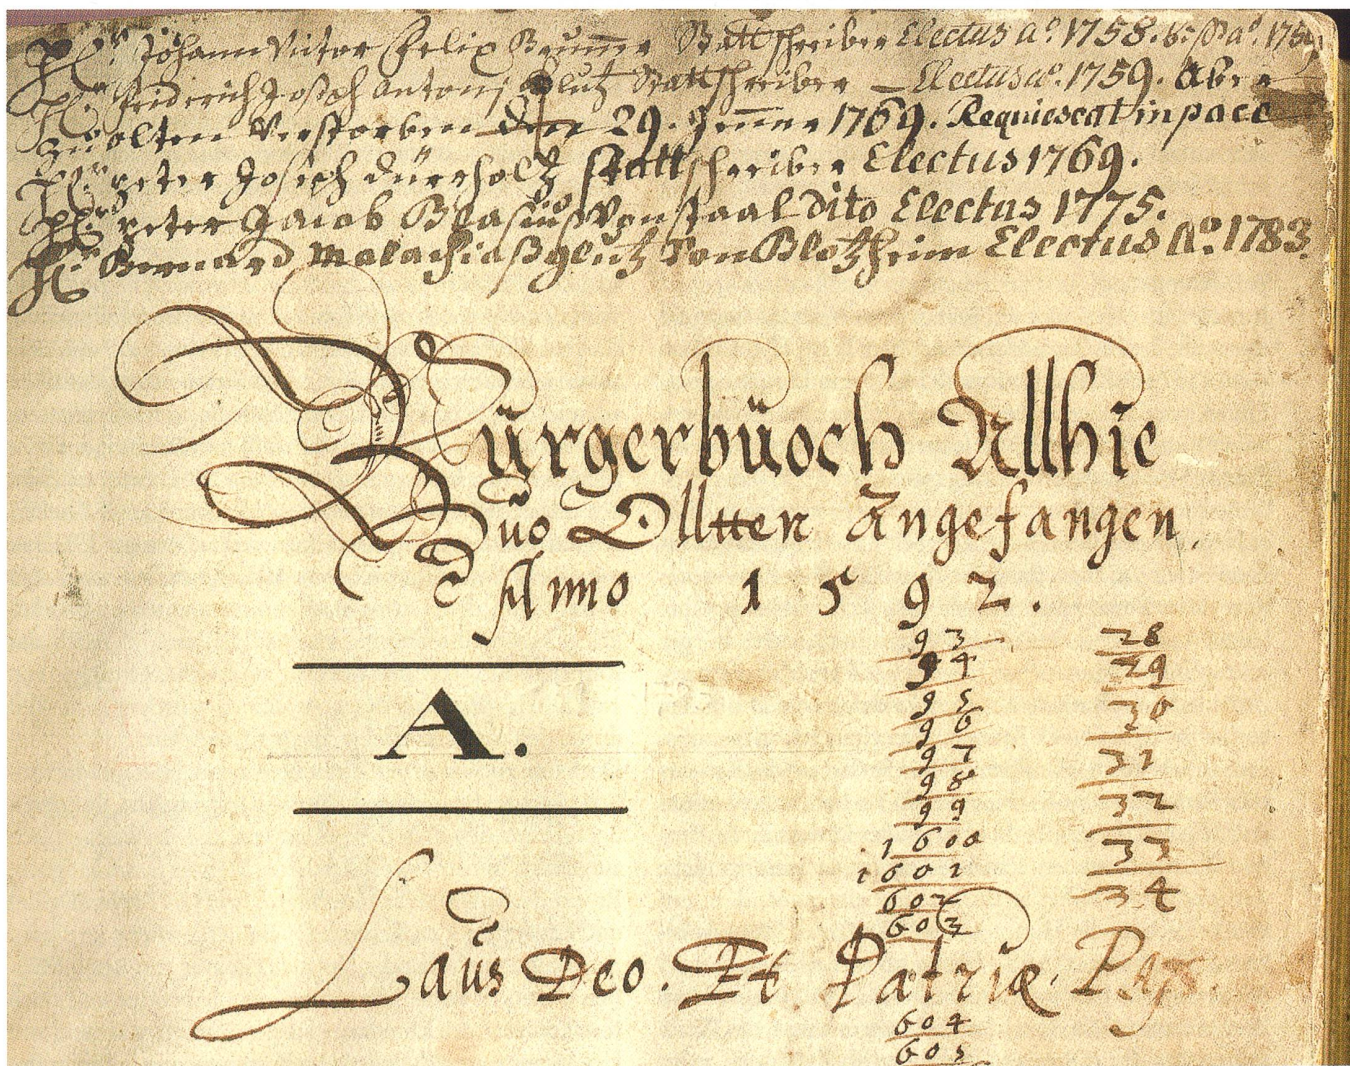 Johann Victor Felix Brunner Stattschreiber Electus aº. 1758.
Friderich Joseph Antoni Glutz Stattschreiber Electus aº. 1759. Aber
zu olten Verstorben den 29. Jenner 1769. Requiescat in pace
peter Joseph dürholtz stattschreiber Electus 1769.
peter Jacob Blasius Von staal dito Electus 1775.
Bernard Malachias glutz Von Blotzheim Electus Aº. 1783.
Bürgerbüoch Allhie
Zuo Olltten Angefangen.
Anno 1592.
93 28
94 29
95 30
96
97 31
98
99 32
1600 33
1601
602 34
603
A.
Laus Deo. Et Patriæ. Pax.
604
605